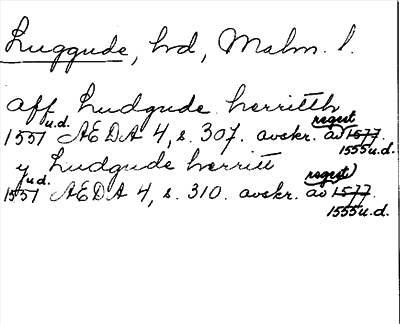 Luggude, hd, Malm. l.
aff Ludgude herritth
u.d. regest
1557 AEDA 4, s. 307. avskr. av 1577.
1555 u.d.
y Ludgude herritt
u.d. regest
1557 AEDA 4, s. 310. avskr. av 1577.
1555 u.d.